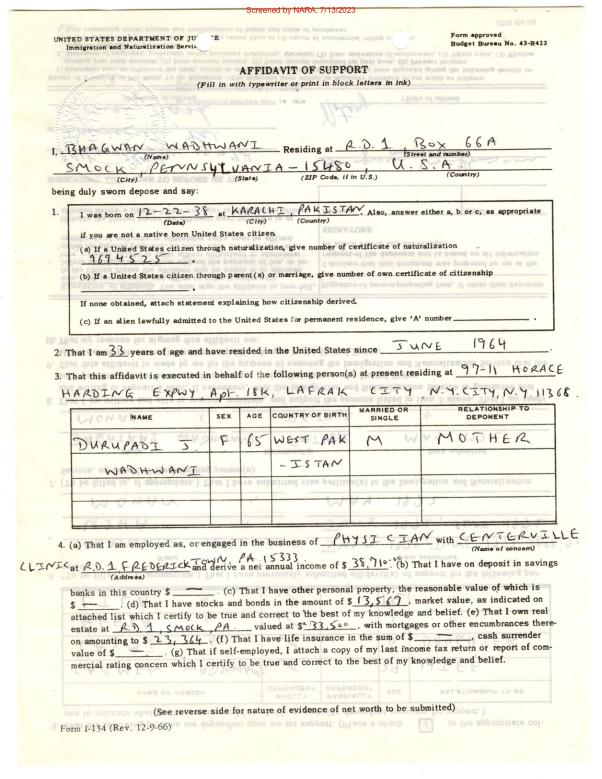 Screened by NARA, 7/13/2023
UNITED STATES DEPARTMENT OF JU
Immigration and Naturalization Servic
Form approved
Budget Bureau No. 43-R423
AFFIDAVIT OF SUPPORT
(Fill in with typewriter or print in block letters in ink)
I, BHAGWAN WADHWANI Residing at R.D.1, BOX 66A
(Name) (Street and number)
SMOCK, PENNSYLVANIA - 15480, U.S.A.
(City) (State) (ZIP Code, if in U.S.) (Country)
being duly sworn depose and say:
1. I was born on 12-22-38 at KARACHI, PAKISTAN. Also, answer either a, b or c, as appropriate
(Date) (City) (Country)
if you are not a native born United States citizen.
(a) If a United States citizen through naturalization, give number of certificate of naturalization
9694525.
(b) If a United States citizen through parent(s) or marriage, give number of own certificate of citizenship
If none obtained, attach statement explaining how citizenship derived.
(c) If an alien lawfully admitted to the United States for permanent residence, give 'A' number
2. That I am 33 years of age and have resided in the United States since JUNE 1964
3. That this affidavit is executed in behalf of the following person(s) at present residing at 97-11 HORACE
HARDING EXPWY, Apt. 18K, LAFRAK CITY N.Y. CITY, N.Y 11368.
NAME SEX AGE COUNTRY OF BIRTH MARRIED OR SINGLE RELATIONSHIP TO DEPONENT
DURUPADI J. F 65 WEST PAK M MOTHER
WADHWANI - ISTAN
4. (a) That I am employed as, or engaged in the business of PHYSICIAN with CENTERVILLE
(Name of concern)
CLINIC at R.D.1 FREDERICKTOWN, PA 15333 and derive a net annual income of $ 38,710.00 (b) That I have on deposit in savings
(Address)
banks in this country $ —. (c) That I have other personal property, the reasonable value of which is
$ —. (d) That I have stocks and bonds in the amount of $ 13,567, market value, as indicated on
attached list which I certify to be true and correct to the best of my knowledge and belief. (e) That I own real
estate at R.D.1, SMOCK, PA valued at $ 33,500, with mortgages or other encumbrances there-
on amounting to $ 23,364. (f) That I have life insurance in the sum of $ —, cash surrender
value of $ —. (g) That if self-employed, I attach a copy of my last income tax return or report of com-
mercial rating concern which I certify to be true and correct to the best of my knowledge and belief.
(See reverse side for nature of evidence of net worth to be submitted)
Form I-134 (Rev. 12-9-66)